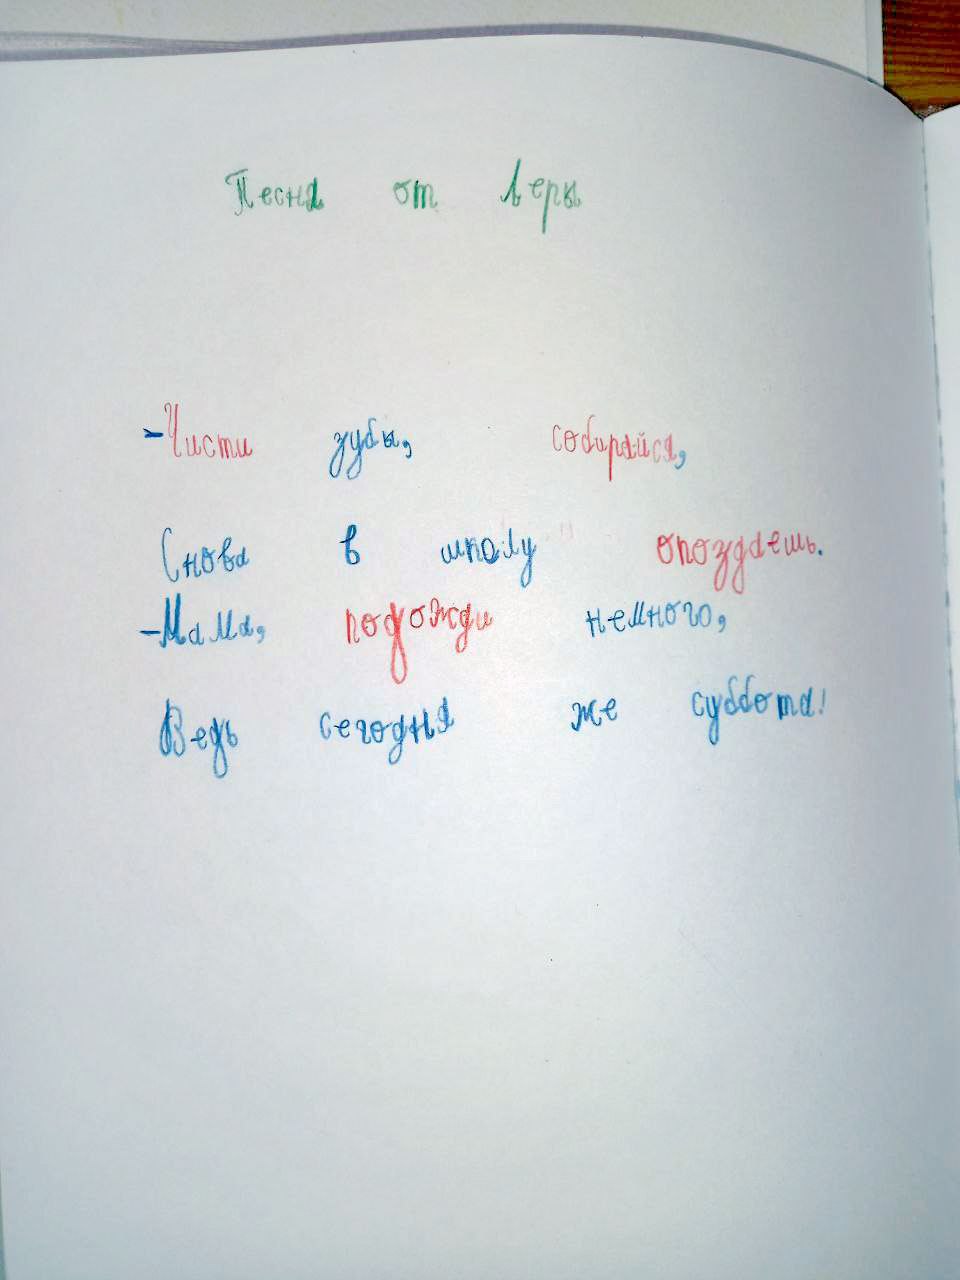 Песня от Веры
-Чисти зубы, собирайся,
Снова в школу опоздаешь.
-Мама, подожди немного,
Ведь сегодня же суббота!